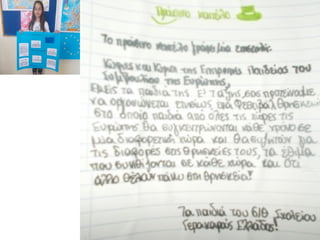 Πράσινο καπέλο
Το πράσινο καπέλο γράφει μία επιστολή:
Κύριες και Κύριοι της Επιτροπής Παιδείας του
Συμβουλίου της Ευρώπης,
Εμείς τα παιδιά της Ε' τάξης, σας προτείνουμε
να οργανώνεται ετησίως ένα Φεστιβάλ Θρησκειών
στο οποίο παιδιά από όλες τις χώρες της
Ευρώπης θα συγκεντρώνονται κάθε χρόνο σε
μία διαφορετική χώρα και θα συζητούν για
τις διαφορές στις θρησκείες τους, τα έθιμα
που συνηθίζονται σε κάθε χώρα και ότι
άλλο θέλουν πάνω στη θρησκεία!
Τα παιδιά του 6/Θ Σχολείου
Γερακαρούς Ελλάδας!